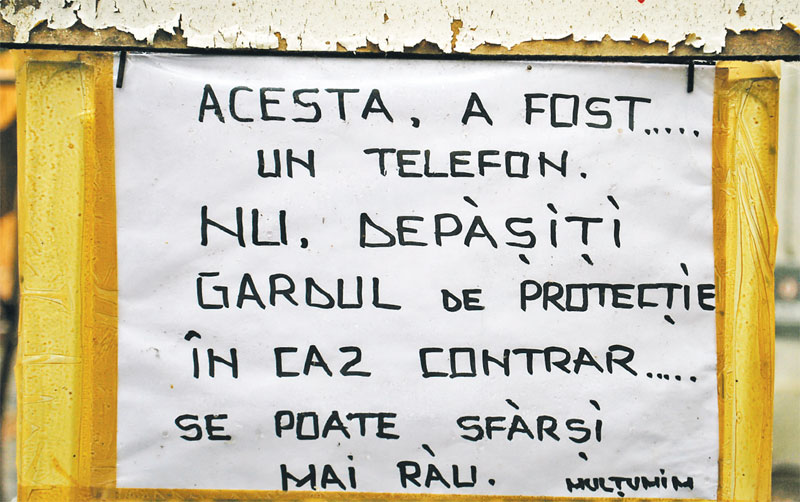 ACESTA, A FOST.....
UN TELEFON.
NU, DEPÀȘIȚI
GARDUL DE PROȚECȚIE
ÎN CAZ CONTRAR.....
SE POATE SFÀRȘI
MAI RÀU. MULȚUMIM